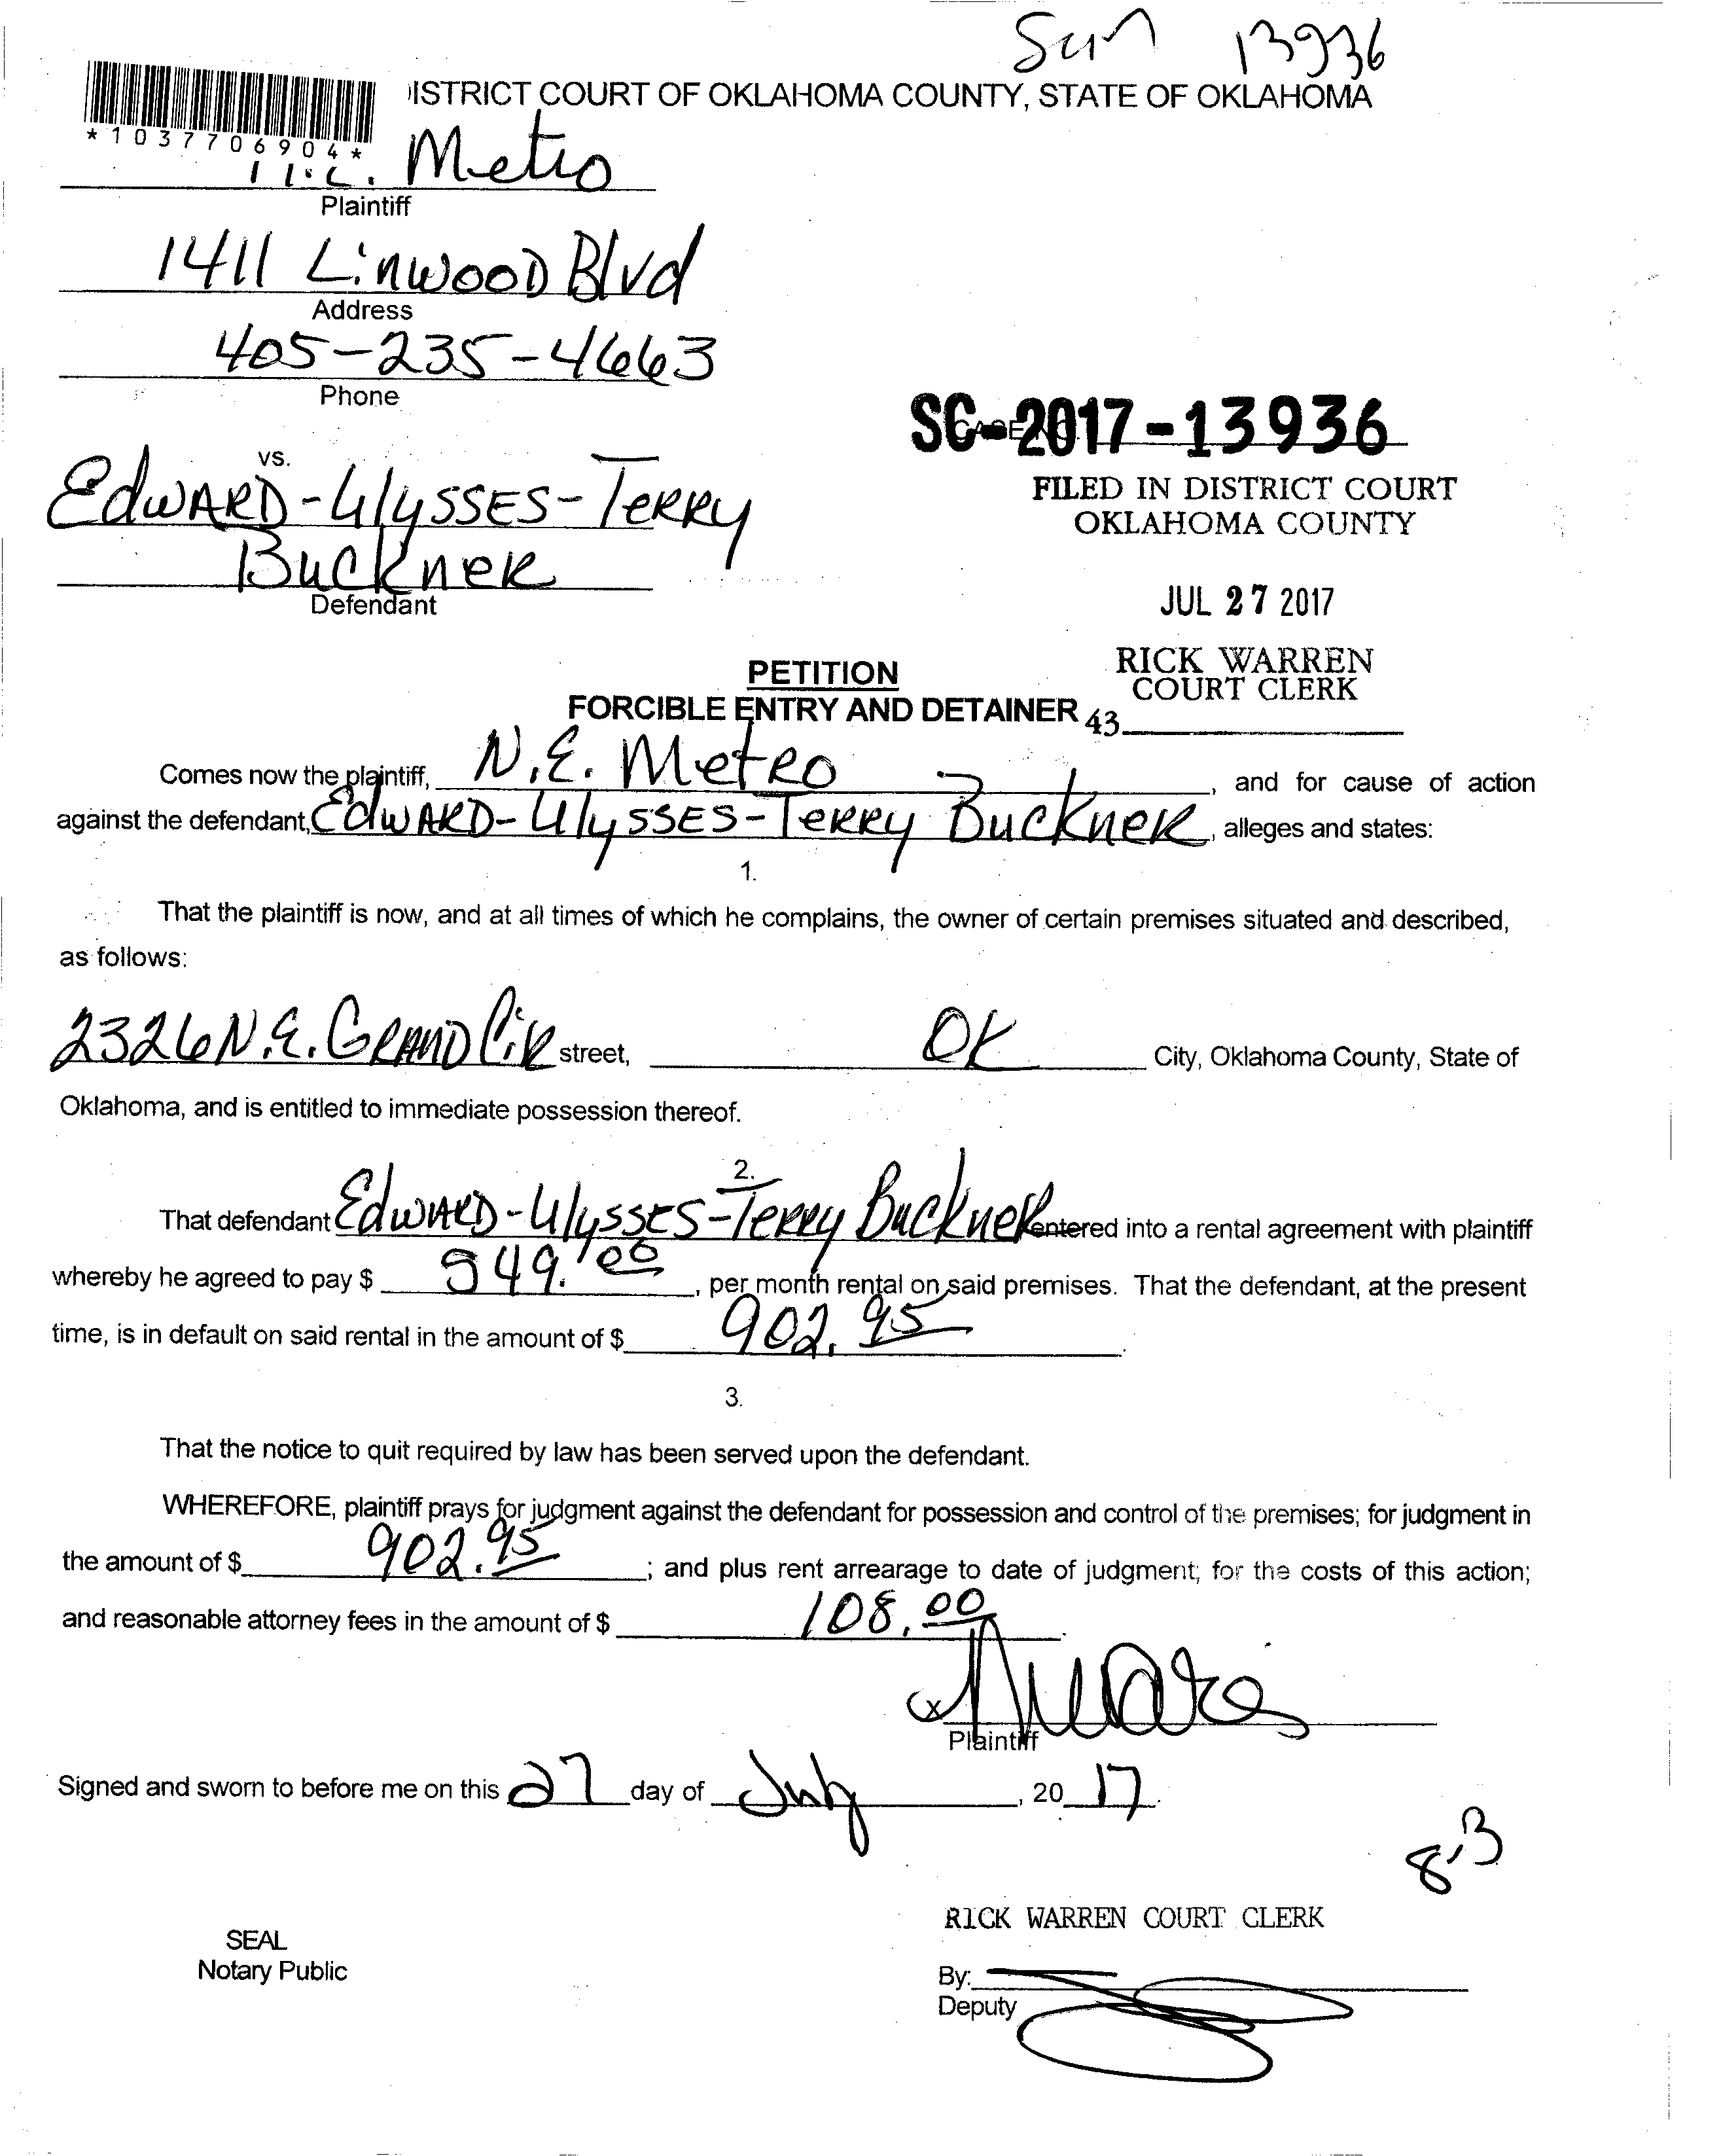 13936
ISTRICT COURT OF OKLAHOMA COUNTY, STATE OF OKLAHOMA
*1037706904*
Metro
Plaintiff
1411 Linwood Blvd
Address
405-235-4663
Phone
SC-2017-13936
vs.
FILED IN DISTRICT COURT
OKLAHOMA COUNTY
Edward-Ulysses-Terry
Buckner
Defendant
JUL 27 2017
RICK WARREN
COURT CLERK
PETITION
FORCIBLE ENTRY AND DETAINER 43
Comes now the plaintiff, N.E. Metro, and for cause of action
against the defendant, Edward-Ulysses-Terry Buckner, alleges and states:
1.
That the plaintiff is now, and at all times of which he complains, the owner of certain premises situated and described,
as follows:
2326 N.E. Grand Cir street, OK City, Oklahoma County, State of
Oklahoma, and is entitled to immediate possession thereof.
2.
That defendant Edward-Ulysses-Terry Buckner entered into a rental agreement with plaintiff
whereby he agreed to pay $ 549.00, per month rental on said premises. That the defendant, at the present
time, is in default on said rental in the amount of $ 902.95.
3.
That the notice to quit required by law has been served upon the defendant.
WHEREFORE, plaintiff prays for judgment against the defendant for possession and control of the premises; for judgment in
the amount of $ 902.95; and plus rent arrearage to date of judgment; for the costs of this action;
and reasonable attorney fees in the amount of $ 108.00.
x
Plaintiff
Signed and sworn to before me on this 27 day of July, 20 17.
RICK WARREN COURT CLERK
SEAL
Notary Public
By:
Deputy